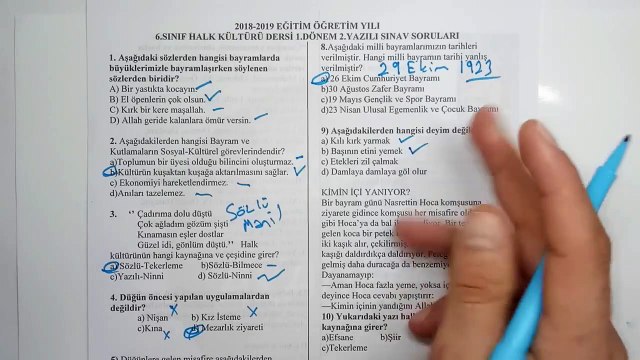 2018-2019 EĞİTİM ÖĞRETİM YILI
6.SINIF HALK KÜLTÜRÜ DERSİ 1.DÖNEM 2.YAZILI SINAV SORULARI
1. Aşağıdaki sözlerden hangisi bayramlarda
büyüklerimizle bayramlaşırken söylenen
sözlerden biridir?
A) Bir yastıkta kocayın
B) El öpenlerin çok olsun
C) Kırk bir kere maşallah
D) Allah geride kalanlara ömür versin
2. Aşağıdakilerden hangisi Bayram ve
Kutlamaların Sosyal-Kültürel görevlerindendir?
a)Toplumun bir üyesi olduğu bilincini oluşturmaz
b)Kültürün kuşaktan kuşağa aktarılmasını sağlar.
c) Ekonomiyi hareketlendirmez
d)Anıları tazelemez
3. “ Çadırıma dolu düştü
Çok ağladım gözüm şişti
Kınamasın eşler dostlar
Güzel idi, gönlüm düştü.” Halk
SÖZLÜ
mani
kültürünün hangi kaynağına ve çeşidine girer?
a)Sözlü-Tekerleme b)Sözlü-Bilmece
c)Yazılı-Ninni d) Sözlü-Ninni
4. Düğün öncesi yapılan uygulamalardan
değildir?
a)Nişan b) Kız İsteme
c)Kına d)Mezarlık ziyareti
5) Düğünlere gelen misafire aşağıdakilerden
8.Aşağıdaki milli bayramlarımızın tarihleri
verilmiştir. Hangi milli bayramın tarihi yanlış
verilmiştir?
29 Ekim 1923
a)26 Ekim Cumhuriyet Bayramı
b)30 Ağustos Zafer Bayramı
c)19 Mayıs Gençlik ve Spor Bayramı
d)23 Nisan Ulusal Egemenlik ve Çocuk Bayramı
9) Aşağıdakilerden hangisi deyim
a) Kılı kırk yarmak
b) Başının etini yemek
c) Etekleri zil çalmak
d) Damlaya damlaya göl olur
KİMİN İÇİ YANIYOR?
Bir bayram günü Nasrettin Hoca komşusuna
ziyarete gidince komşusu her misafire
gibi Hoca'ya da bal
koca bir petek
iki kaşık alır, çekilirmiş
kaşığı daldırdıkça daldırıyor
gelmiş daha duracağa da benzemiyor
Dayanamayıp:
—Aman Hoca fazla yeme, yoksa iç
deyince Hoca cevabı yapıştırır:
—Kimin içinin yandığını Allah
10) Yukarıdaki yazı halk
kaynağına girer?
a)Efsane b)Şiir
c)Tekerleme